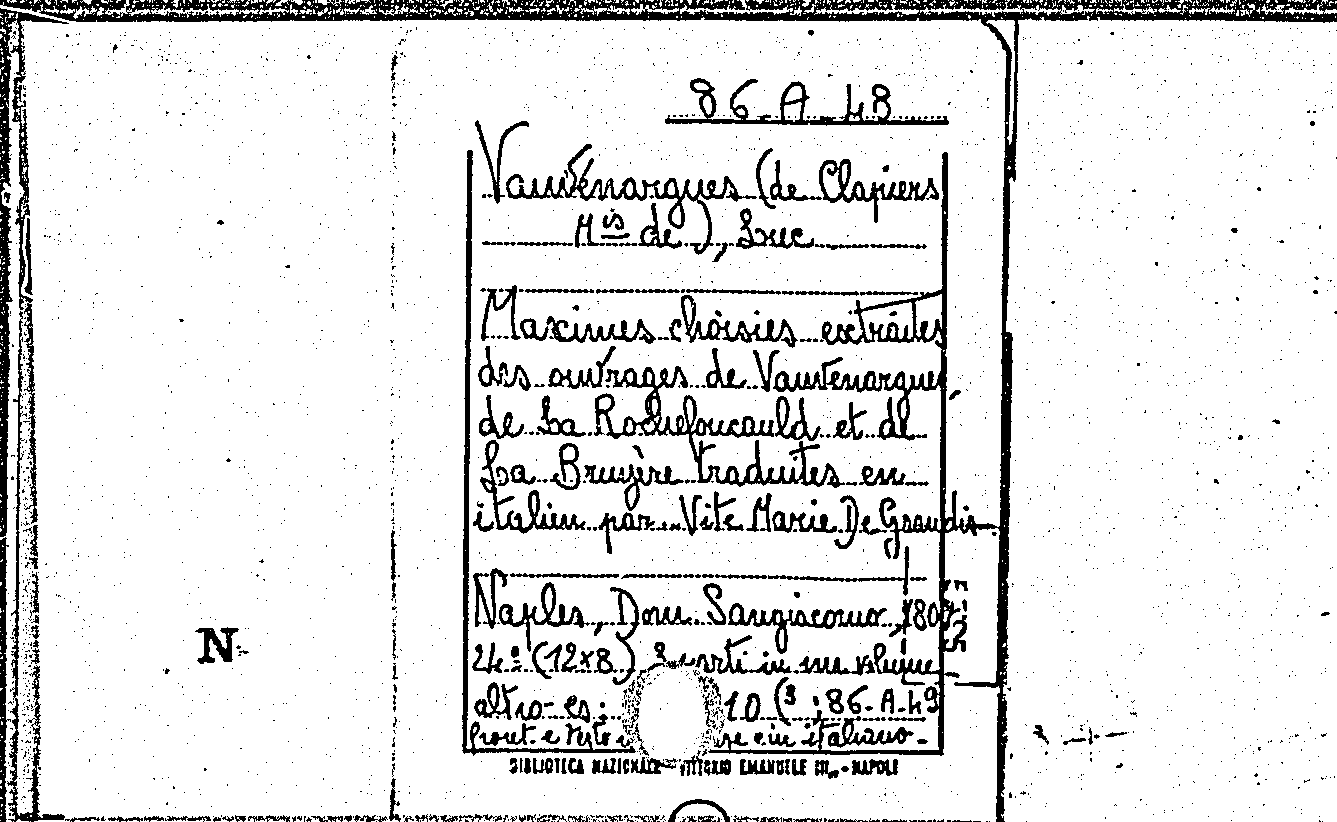 86-A-48
Vauvenargues (de Clapiers
Mis de), Luc
Maximes choisies extraites
des ouvrages de Vauvenargues,
de La Rochefoucauld et de
La Bruyère traduites en
italien par Vite Marie De Grandis
Naples, Dom Sangiacomo,
24° (12×8) in un volume
altro es: 86-A-49
front. e testo e in italiano-
N
BIBLIOTECA NAZIONALE - VITTORIO EMANUELE III - NAPOLI